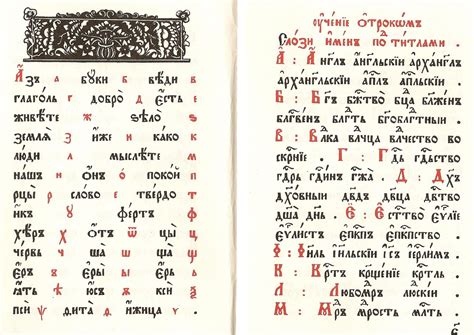 А҆зъ а бꙋки б вѣди в
глаголь г добро̀ д є҆сть є
живѣте ж ѕѣло̀ ѕ
землѧ̀ з и҆же и како к
люди л мыслѣте м
нашъ н ѻ҆нъ о покой п
рцы р слово с твердо т
и҆къ ꙋ фертъ ф
хѣръ х ѿтъ ѿ цы ц
червь ч ша ш ща щ
є҆ръ ъ є҆ры ы є҆рь ь
ꙗ҆ть ѣ ю҆съ ю ѯи ѯ
ѱи ѱ ѳита ѳ и҆жица ѵ
ᲂу҆че́нїе ѻ҆трокѡ́мъ
Слози и҆ме́нъ по ти́тламъ
А҃ : А҃ : а҆́гг҃лъ а҆́гг҃льскїй а҆рха́гг҃лъ
а҆рха́гг҃льскїй а҆пⷭ҇лъ а҆пⷭ҇льскїй
Б҃ : Б҃гъ бж҃тво̀ бц҃а бл҃же́нъ
бл҃гве́нъ бл҃гть бл҃годѣ́тный
В҃ : вл҃ка вл҃чца вл҃чество во
скрⷭ҇нїе Г҃ : гдⷭ҇ь гдⷭ҇ьство
гдⷭ҇рь гдⷭ҇и́нъ гж҃а Д҃ : дх҃ъ
дх҃о́вный дв҃дъ дв҃ца дв҃тво
дш҃а дн҃ь Є҃ : є҆стество̀ є҆ѵⷢ҇лїе
є҆ѵⷢ҇ли́стъ є҆пⷭ҇кпъ є҆пⷭ҇кпство
І҃ : І҆и҃ль і҆и҃льскїй і҆ерⷭ҇ли́мъ
К҃ : крⷭ҇тъ крⷭ҇ще́нїе крⷭ҇тль
Л҃ : любомрⷣъ ломрⷣъ
М҃ : мрⷣъ мрⷣость мл҃ть